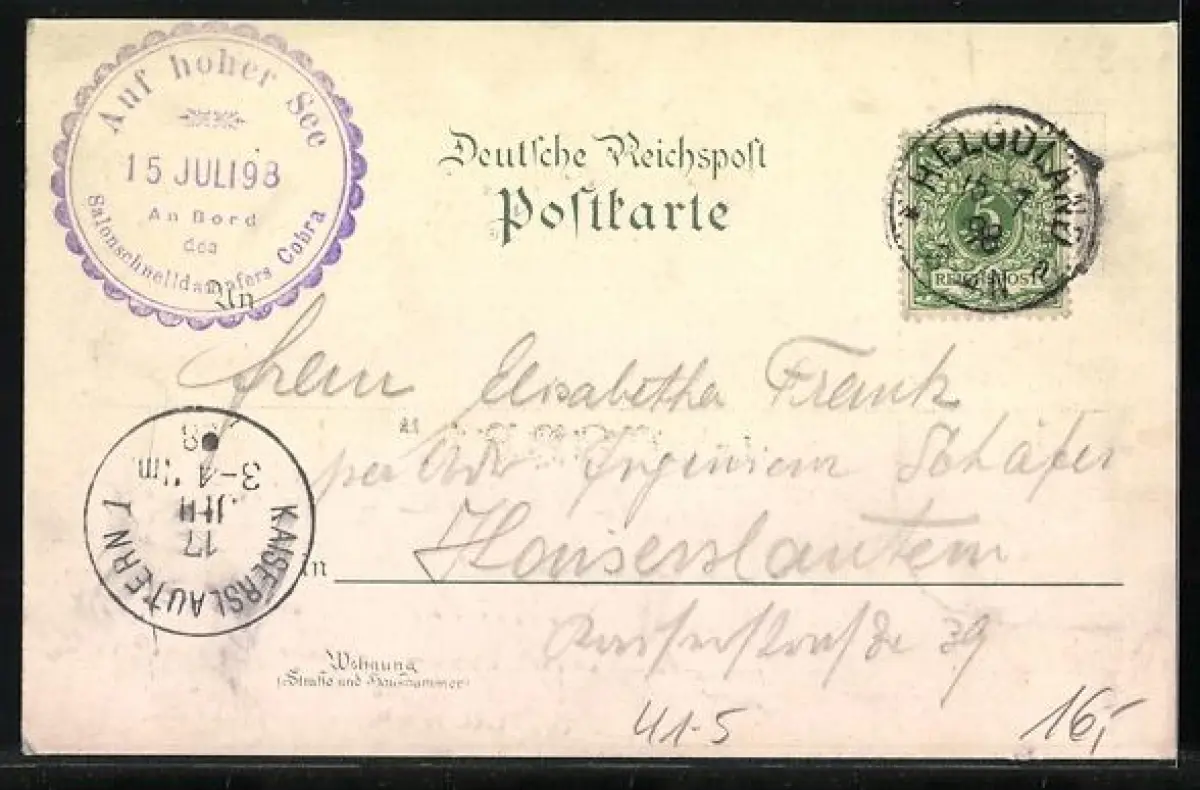 Auf hoher See
15 JULI 98
An Bord
des
Salonschnelldampfers Cobra
Deutsche Reichspost
Postkarte
HELGOLAND
15 7
98
5
REICHSPOST
An
Elisabetha Frank
per Adr Ingenieur Schäfer
Kaiserslautern
in
Kaiserstraße 39
KAISERSLAUTERN I
17
JUL
3-4 Nm
98
Wohnung
(Straße und Hausnummer)
41-5
16,-